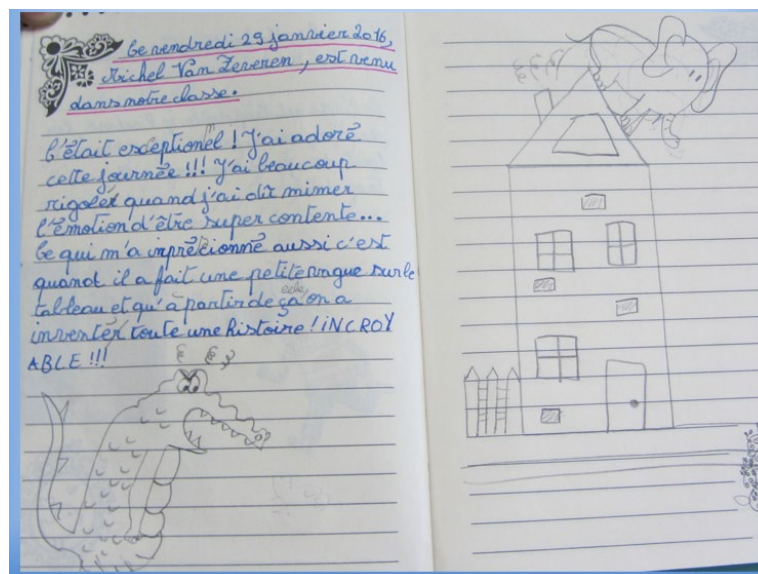 Le vendredi 29 janvier 2016,
Michel Van Zeveren, est venu
dans notre classe.
C'était exceptionel ! J'ai adoré
cette journée !!! J'ai beaucoup
rigoler quand j'ai dit mimer
l'émotion d'être super contente...
Ce qui m'a imprécionné aussi c'est
quand il a fait une petite vague sur le
tableau et qu'à partir de ça on a
inventer toute une histoire ! INCROY
ABLE !!!